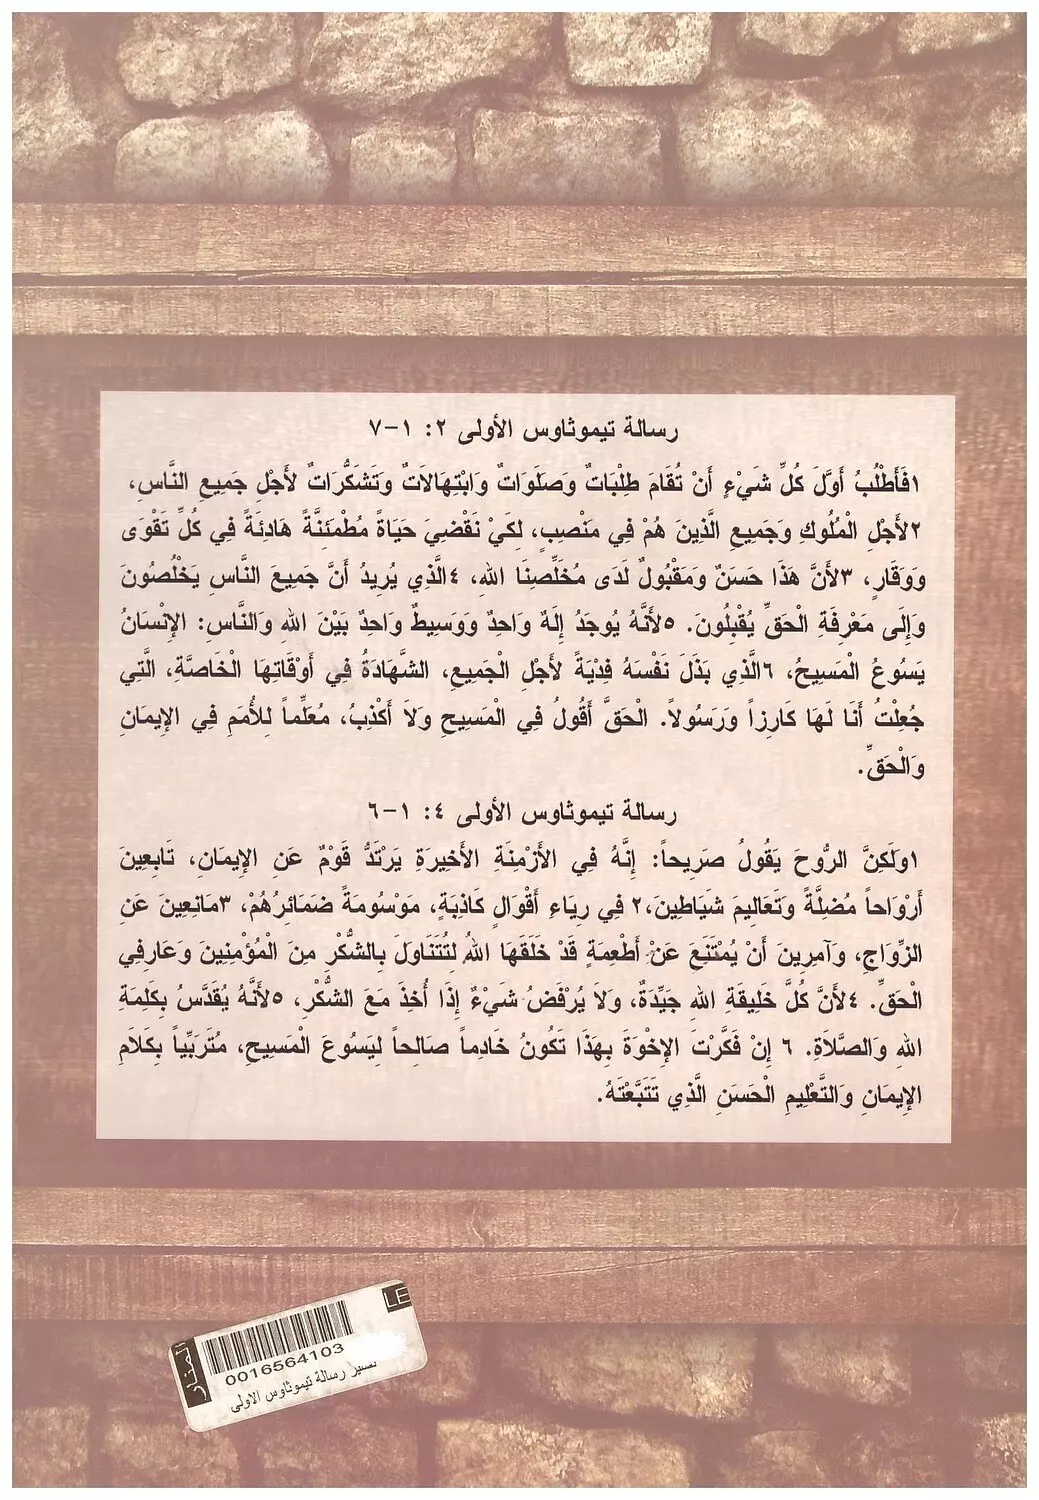 رسالة تيموثاوس الأولى ٢: ١-٧
١فَأَطْلُبُ أَوَّلَ كُلِّ شَيْءٍ أَنْ تُقَامَ طِلْبَاتٌ وَصَلَوَاتٌ وَابْتِهَالَاتٌ وَتَشَكُّرَاتٌ لأَجْلِ جَمِيعِ النَّاسِ،
٢لأَجْلِ الْمُلُوكِ وَجَمِيعِ الَّذِينَ هُمْ فِي مَنْصِبٍ، لِكَيْ نَقْضِيَ حَيَاةً مُطْمَئِنَّةً هَادِئَةً فِي كُلِّ تَقْوَى
وَوَقَارٍ، ٣لأَنَّ هَذَا حَسَنٌ وَمَقْبُولٌ لَدَى مُخَلِّصِنَا اللهِ، ٤الَّذِي يُرِيدُ أَنَّ جَمِيعَ النَّاسِ يَخْلُصُونَ
وَإِلَى مَعْرِفَةِ الْحَقِّ يُقْبِلُونَ. ٥لأَنَّهُ يُوجَدُ إِلَهٌ وَاحِدٌ وَوَسِيطٌ وَاحِدٌ بَيْنَ اللهِ وَالنَّاسِ: الإِنْسَانُ
يَسُوعُ الْمَسِيحُ، ٦الَّذِي بَذَلَ نَفْسَهُ فِدْيَةً لأَجْلِ الْجَمِيعِ، الشَّهَادَةُ فِي أَوْقَاتِهَا الْخَاصَّةِ، الَّتِي
جُعِلْتُ أَنَا لَهَا كَارِزاً وَرَسُولاً. الْحَقَّ أَقُولُ فِي الْمَسِيحِ وَلاَ أَكْذِبُ، مُعَلِّماً لِلأُمَمِ فِي الإِيمَانِ
وَالْحَقِّ.
رسالة تيموثاوس الأولى ٤: ١-٦
١ولَكِنَّ الرُّوحَ يَقُولُ صَرِيحاً: إِنَّهُ فِي الأَزْمِنَةِ الأَخِيرَةِ يَرْتَدُّ قَوْمٌ عَنِ الإِيمَانِ، تَابِعِينَ
أَرْوَاحاً مُضِلَّةً وَتَعَالِيمَ شَيَاطِينَ،٢ فِي رِيَاءِ أَقْوَالٍ كَاذِبَةٍ، مَوْسُومَةً ضَمَائِرُهُمْ، ٣مَانِعِينَ عَنِ
الزِّوَاجِ، وَآمِرِينَ أَنْ يُمْتَنَعَ عَنْ أَطْعِمَةٍ قَدْ خَلَقَهَا اللهُ لِتُتَنَاوَلَ بِالشُّكْرِ مِنَ الْمُؤْمِنِينَ وَعَارِفِي
الْحَقِّ. ٤لأَنَّ كُلَّ خَلِيقَةِ اللهِ جَيِّدَةٌ، وَلاَ يُرْفَضُ شَيْءٌ إِذَا أُخِذَ مَعَ الشُّكْرِ، ٥لأَنَّهُ يُقَدَّسُ بِكَلِمَةِ
اللهِ وَالصَّلاَةِ. ٦ إِنْ فَكَّرْتَ الإِخْوَةَ بِهَذَا تَكُونُ خَادِماً صَالِحاً لِيَسُوعَ الْمَسِيحِ، مُتَرَبِّياً بِكَلاَمِ
الإِيمَانِ وَالتَّعْلِيمِ الْحَسَنِ الَّذِي تَتَبَّعْتَهُ.
LE
المنار
0016564103
تفسير رسالة تيموثاوس الاولى